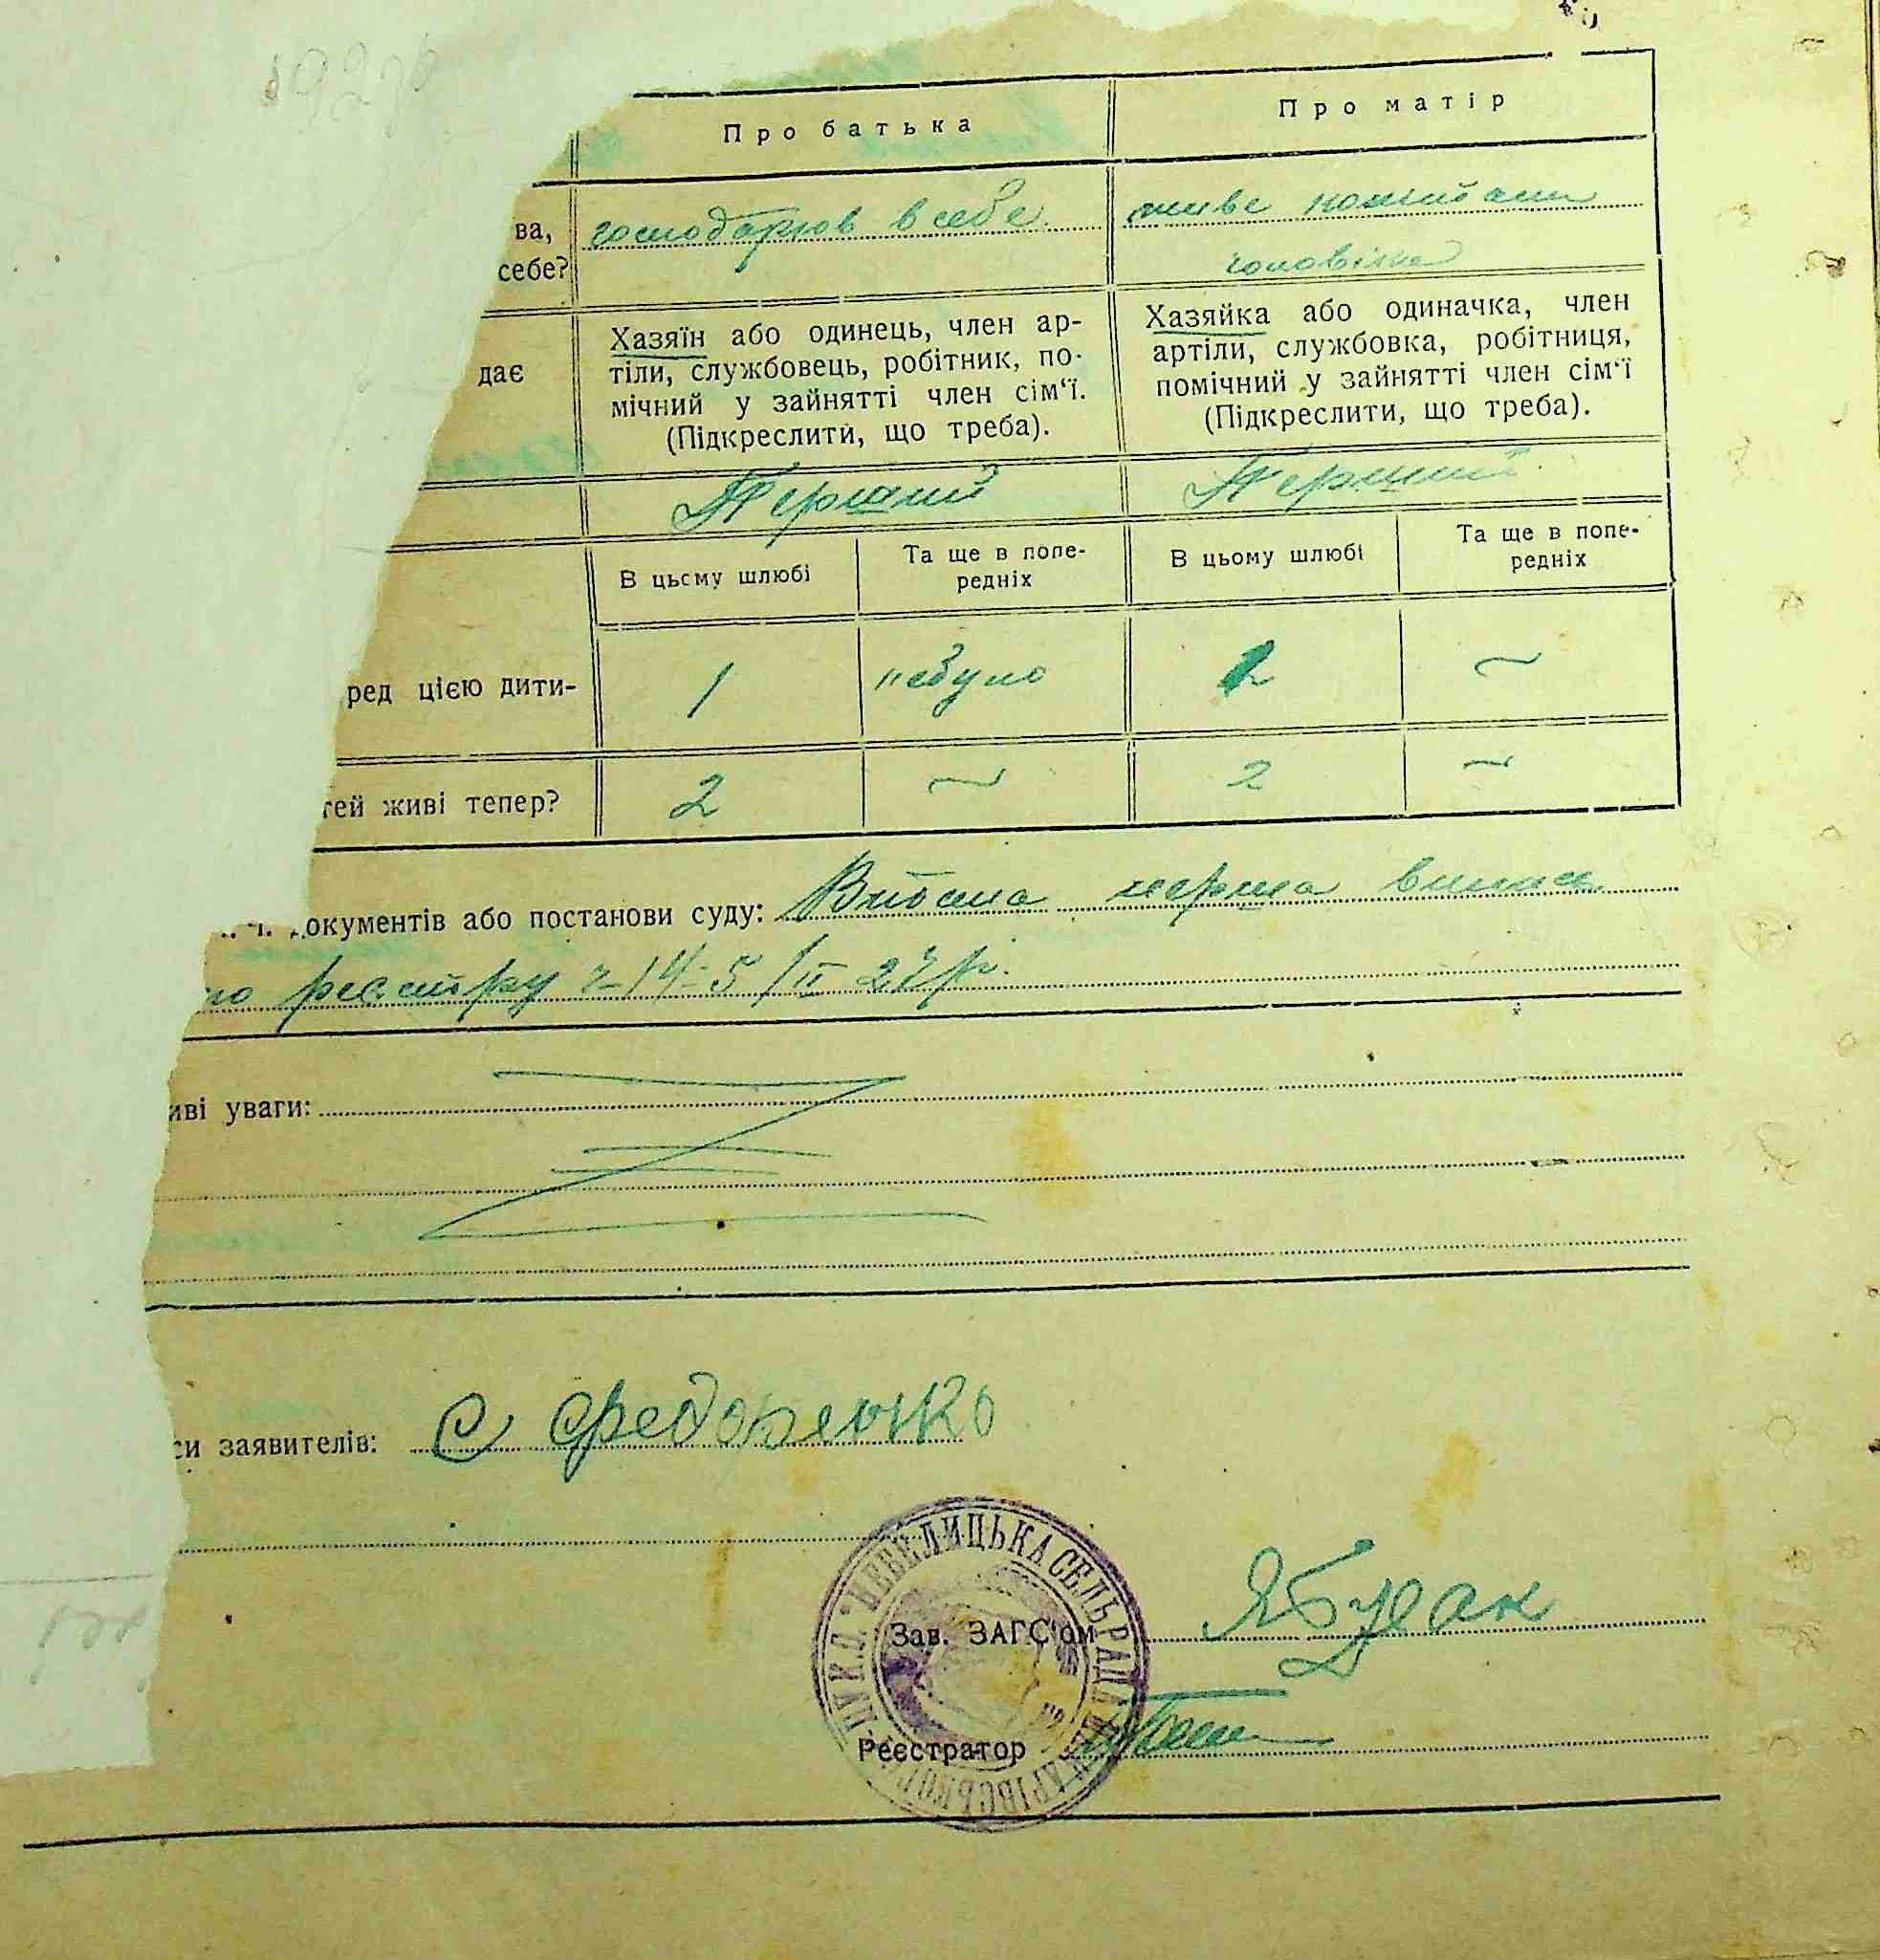 Про батька
Про матір
ва,
себе?
господарюв в себе
живе коштами
чоловіка
дає
Хазяїн або одинець, член ар-
тіли, службовець, робітник, по-
мічний у зайнятті член сім‘ї.
(Підкреслити, що треба).
Хазяйка або одиначка, член
артіли, службовка, робітниця,
помічний у зайнятті член сім‘ї
(Підкреслити, що треба).
Перший
Перший
В цьому шлюбі
Та ще в попе-
редніх
В цьому шлюбі
Та ще в попе-
редніх
ред цією дити-
1
небуло
2
~
тей живі тепер?
2
~
2
~
документів або постанови суду: Видана перша виписка
по реєстру ч-14-5/II 27р.
иві уваги:
си заявителів: С Федоренко
НЕБЕЛИЦЬКА СЕЛЬРАДА
Зав. ЗАГС'ом
ЯБурак
Реєстратор